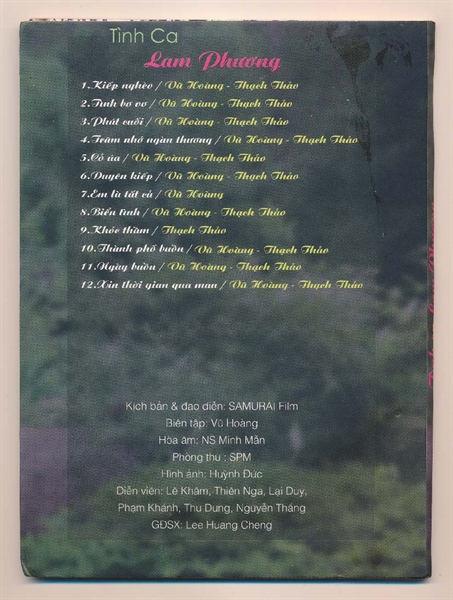 Tình Ca
Lam Phương
1.Kiếp nghèo / Vũ Hoàng - Thạch Thảo
2.Tình bơ vơ / Vũ Hoàng - Thạch Thảo
3.Phút cuối / Vũ Hoàng - Thạch Thảo
4.Trăm nhớ ngàn thương / Vũ Hoàng - Thạch Thảo
5.Cỏ úa / Vũ Hoàng - Thạch Thảo
6.Duyên kiếp / Vũ Hoàng - Thạch Thảo
7.Em là tất cả / Vũ Hoàng
8.Biển tình / Vũ Hoàng - Thạch Thảo
9.Khóc thầm / Thạch Thảo
10.Thành phố buồn / Vũ Hoàng - Thạch Thảo
11.Ngày buồn / Vũ Hoàng - Thạch Thảo
12.Xin thời gian qua mau / Vũ Hoàng - Thạch Thảo
Kịch bản & đạo diễn: SAMURAI Film
Biên tập: Vũ Hoàng
Hòa âm: NS Minh Mẫn
Phòng thu : SPM
Hình ảnh: Huỳnh Đức
Diễn viên: Lê Khâm, Thiên Nga, Lại Duy,
Phạm Khánh, Thu Dung, Nguyễn Thắng
GĐSX: Lee Huang Cheng